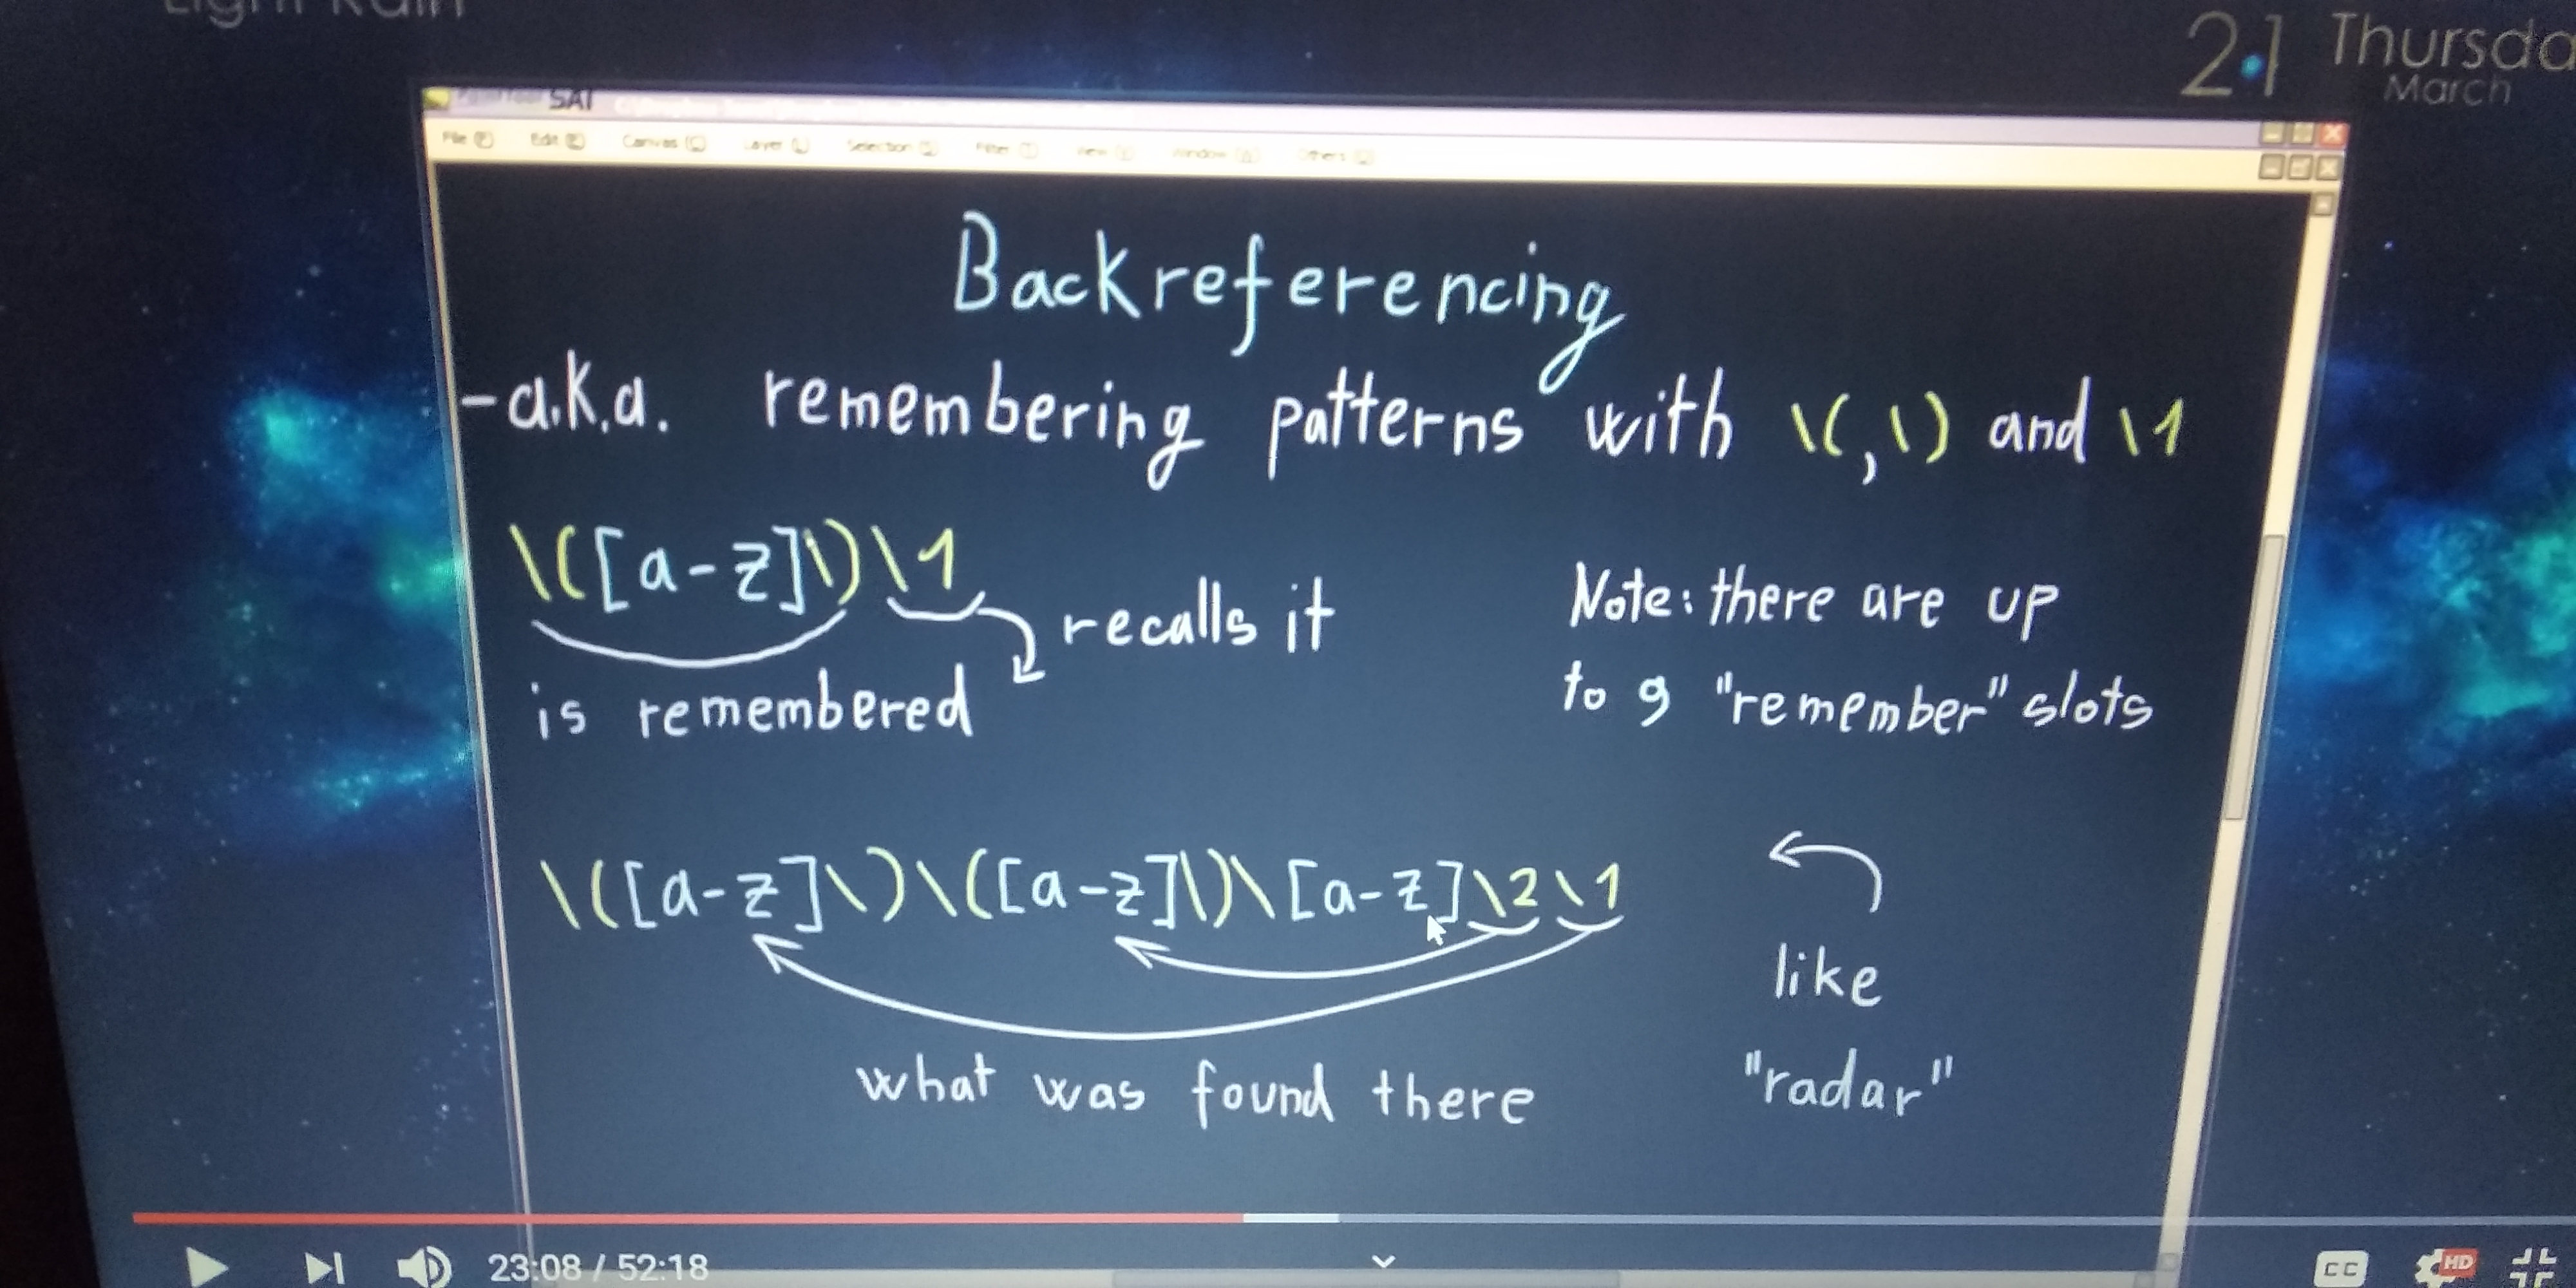 Light Rain
21 Thursda
March
SAI
File (F) Edit (E) Canvas (C) Layer (L) Selection (S) Filter (T) View (V) Window (W) Others (O)
Backreferencing
-a.k.a. remembering patterns with \(,\) and \1
\([a-z]\)\1
recalls it
is remembered
Note: there are up
to 9 "remember" slots
\([a-z]\)\([a-z]\)\[a-z]\2\1
what was found there
like
"radar"
23:08 / 52:18
CC
HD